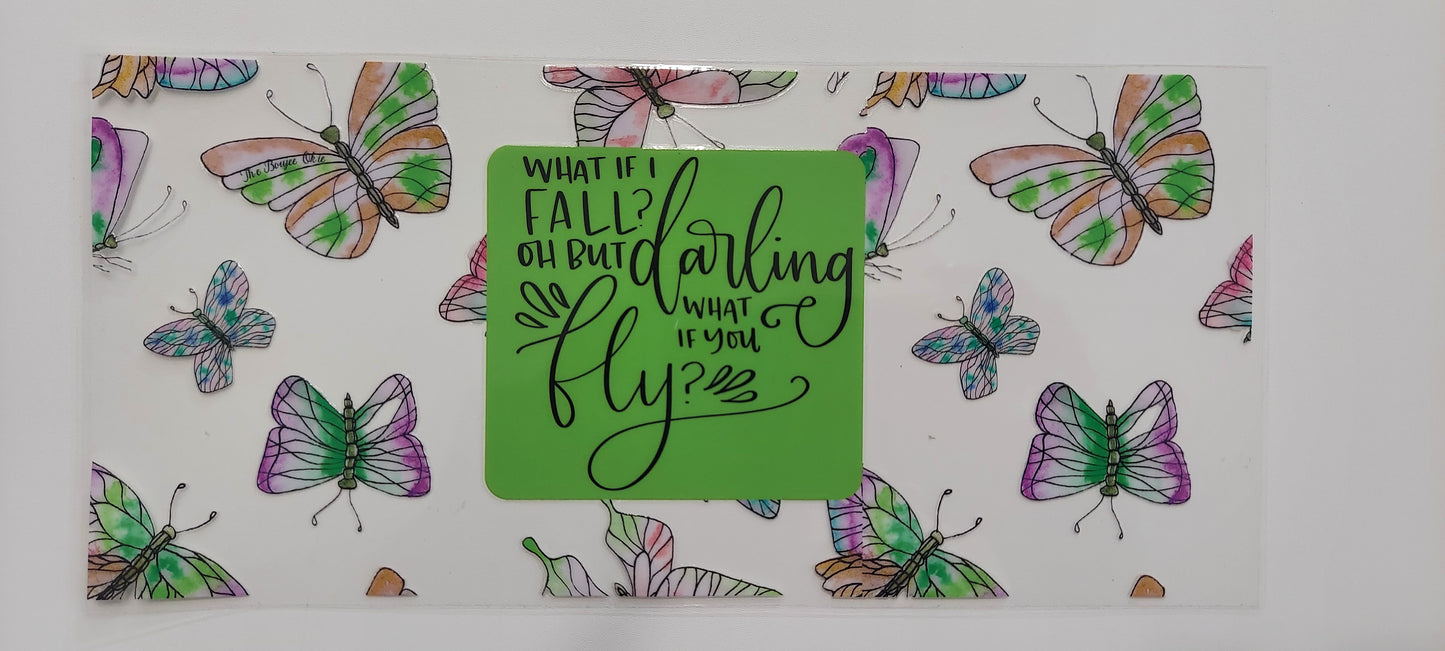 The Boujee Okie
WHAT IF I
FALL?
OH BUT darling
WHAT
IF YOU
fly?